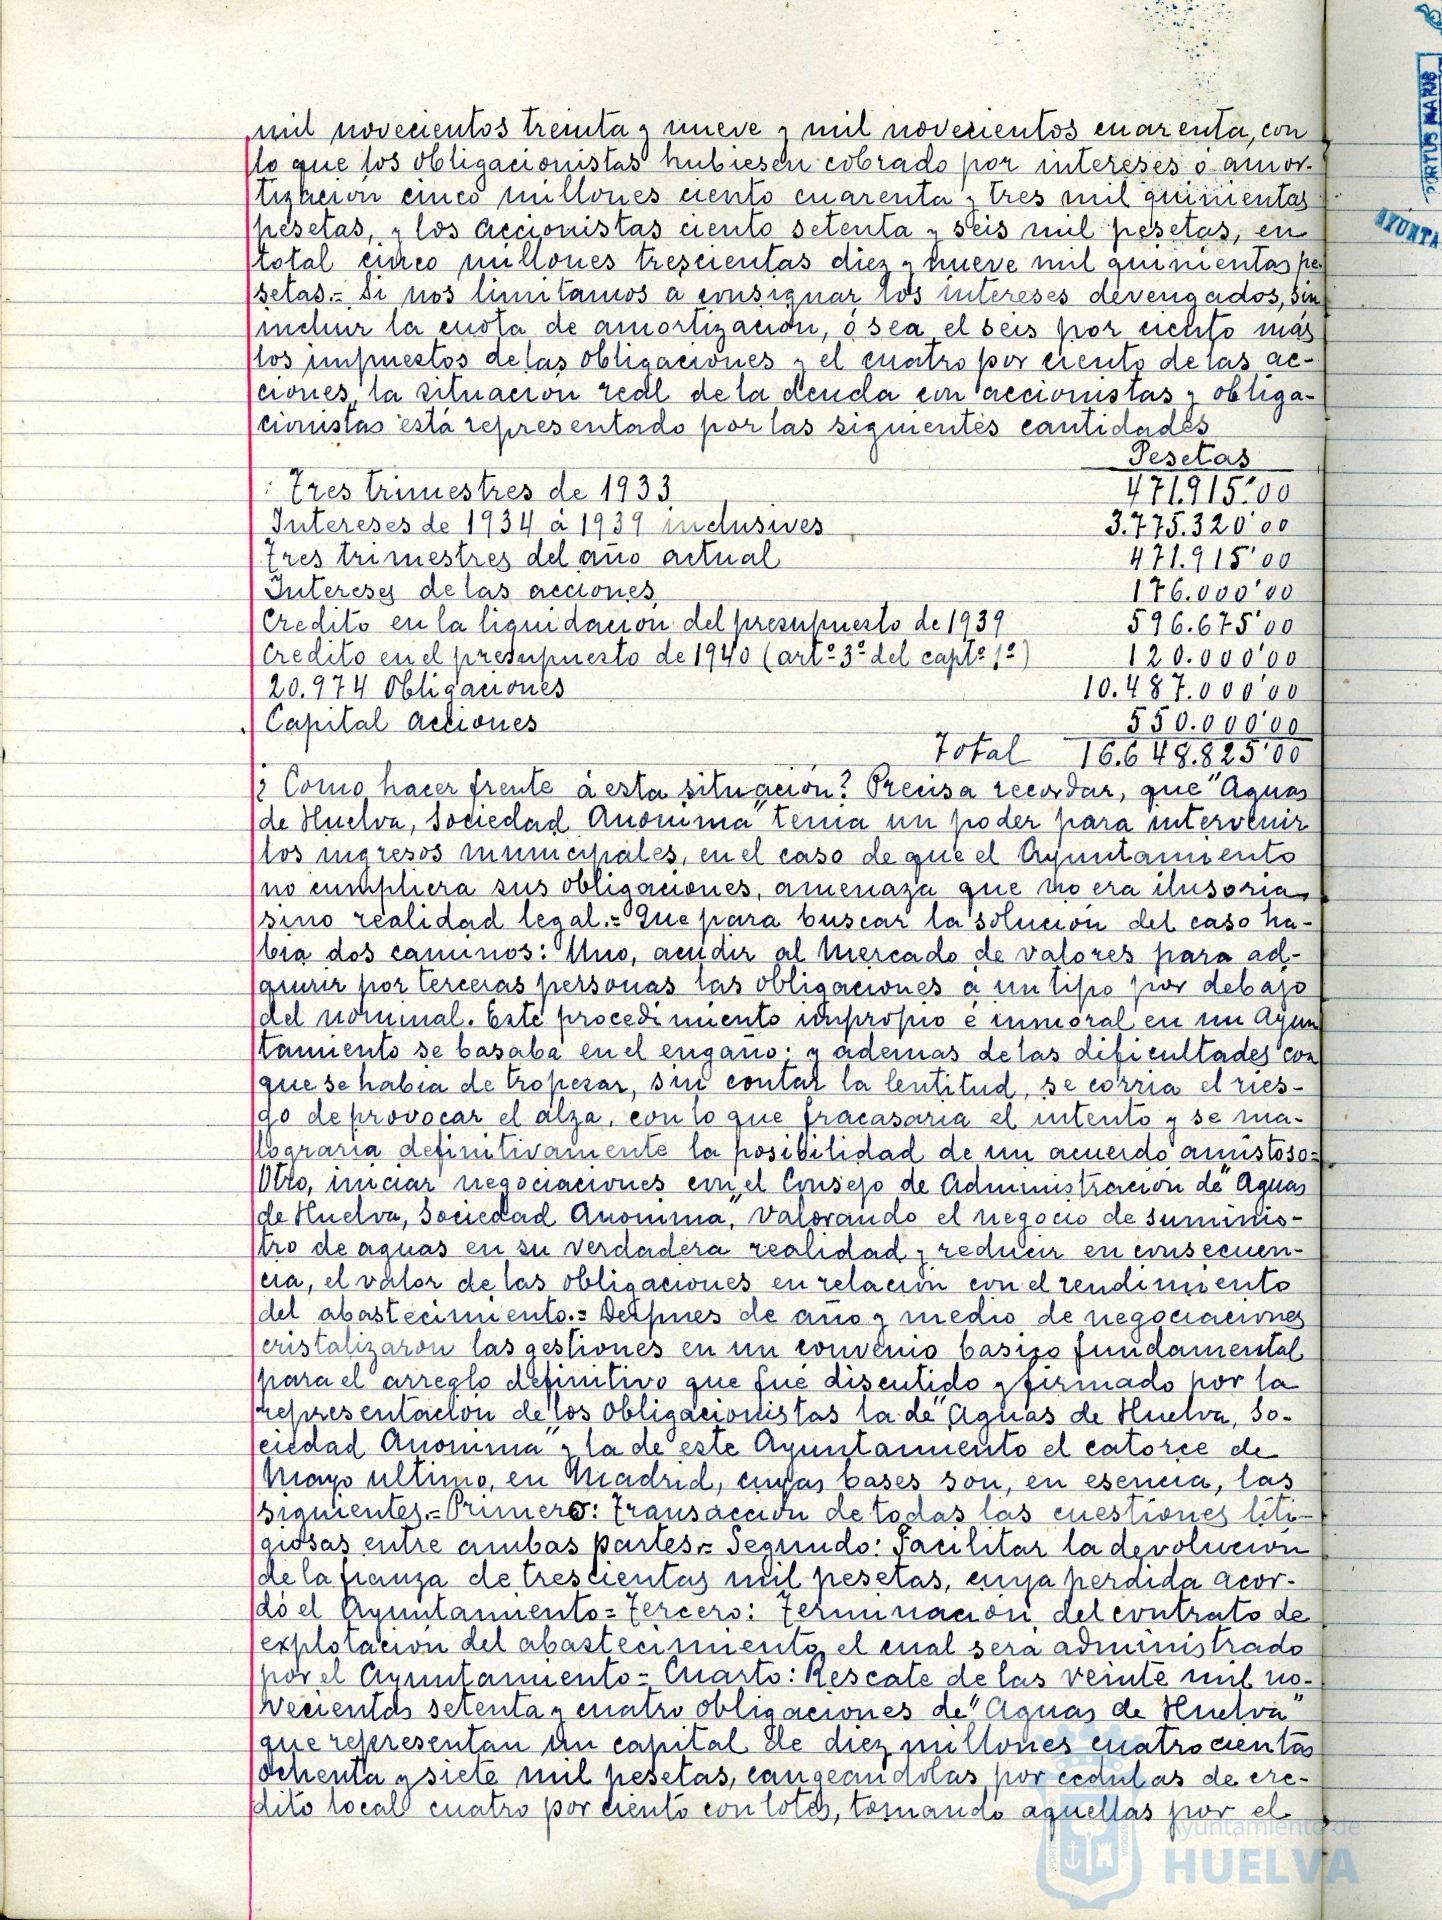 mil novecientos treinta y nueve y mil novecientos cuarenta, con
lo que los obligacionistas hubiesen cobrado por intereses ó amor-
tización cinco millones ciento cuarenta y tres mil quinientas
pesetas, y los accionistas ciento setenta y seis mil pesetas, en
total cinco millones trescientas diez y nueve mil quinientas pe-
setas.= Si nos limitamos a consignar los intereses devengados, sin
incluir la cuota de amortización, ó sea el seis por ciento más
los impuestos de las obligaciones y el cuatro por ciento de las ac-
ciones, la situación real de la deuda con accionistas y obliga-
cionistas está representado por las siguientes cantidades
Pesetas
Tres trimestres de 1933 471.915'00
Intereses de 1934 á 1939 inclusives 3.775.320'00
Tres trimestres del año actual 471.915'00
Intereses de las acciones 176.000'00
Credito en la liquidación del presupuesto de 1939 596.675'00
Credito en el presupuesto de 1940 (artº 3º del captº 1º) 120.000'00
20.974 Obligaciones 10.487.000'00
Capital acciones 550.000'00
Total 16.648.825'00
¿Como hacer frente á esta situación? Precisa recordar, que "Aguas
de Huelva, Sociedad Anonima" tenia un poder para intervenir
los ingresos municipales, en el caso de que el Ayuntamiento
no cumpliera sus obligaciones, amenaza que no era ilusoria,
sino realidad legal.= Que para buscar la solución del caso ha-
bia dos caminos: Uno, acudir al Mercado de valores para ad-
quirir por terceras personas las obligaciones a un tipo por debajo
del nominal. Este procedimiento impropio é inmoral en un Ayun
tamiento se basaba en el engaño; y ademas de las dificultades con
que se habia de tropezar, sin contar la lentitud, se corria el ries-
go de provocar el alza, con lo que fracasaria el intento y se ma-
lograria definitivamente la posibilidad de un acuerdo amistoso=
Otro, iniciar negociaciones con el Consejo de Administración de "Aguas
de Huelva, Sociedad Anonima", valorando el negocio de suminis-
tro de aguas en su verdadera realidad y reducir en consecuen-
cia, el valor de las obligaciones en relación con el rendimiento
del abastecimiento.= Despues de año y medio de negociaciones
cristalizaron las gestiones en un convenio basico fundamental
para el arreglo definitivo que fué discutido y firmado por la
representación de los obligacionistas la de "Aguas de Huelva, So-
ciedad Anonima" y la de este Ayuntamiento el catorce de
Mayo ultimo, en Madrid, cuyas bases son, en esencia, las
siguientes.= Primero: Transacción de todas las cuestiones liti-
giosas entre ambas partes.= Segundo: Facilitar la devolución
de la fianza de trescientas mil pesetas, cuya perdida acor-
dó el Ayuntamiento= Tercero: Terminación del contrato de
explotación del abastecimiento, el cual será administrado
por el Ayuntamiento= Cuarto: Rescate de las veinte mil no-
vecientas setenta y cuatro obligaciones de "Aguas de Huelva"
que representan un capital de diez millones cuatrocientas
ochenta y siete mil pesetas, cangeandolas por cedulas de cre-
dito local cuatro por ciento con lotes, tomando aquellas por el
PORTUS MARIS
AYUNTA
Ayuntamiento de
HUELVA